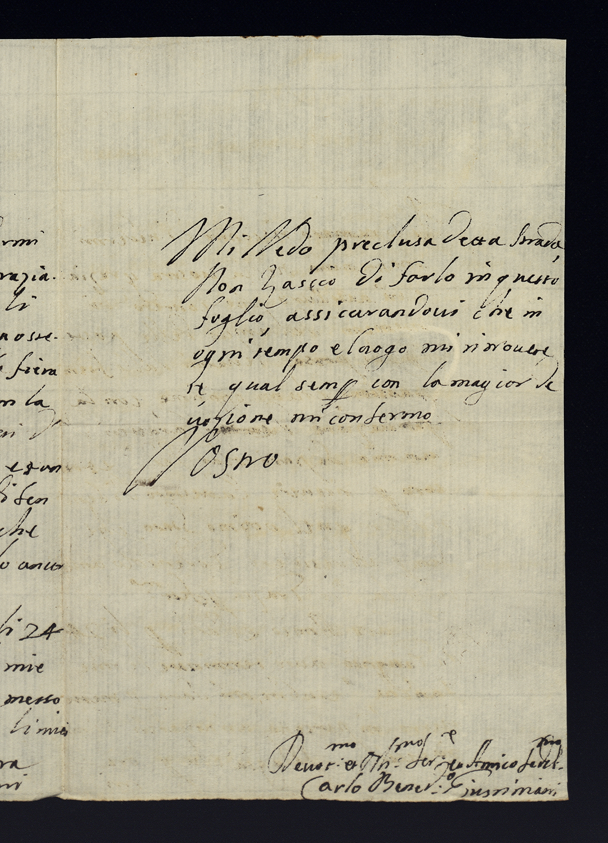 rmi
razia.
li
nosse.
fiera
n la
e tan
li sen
che
o ancor
li 24
mie
messo
limie
ra
ni
Mi vedo preclusa detta strada
Non lascio di farlo in questo
foglio assicurandovi che in
ogni tempo e luogo mi ritrovere
te qual semp con la magior de
vozione mi confermo.
Vostro
Devot.mo et Ser.e Amico fedel.mo
Carlo Bened.o Giustiniani